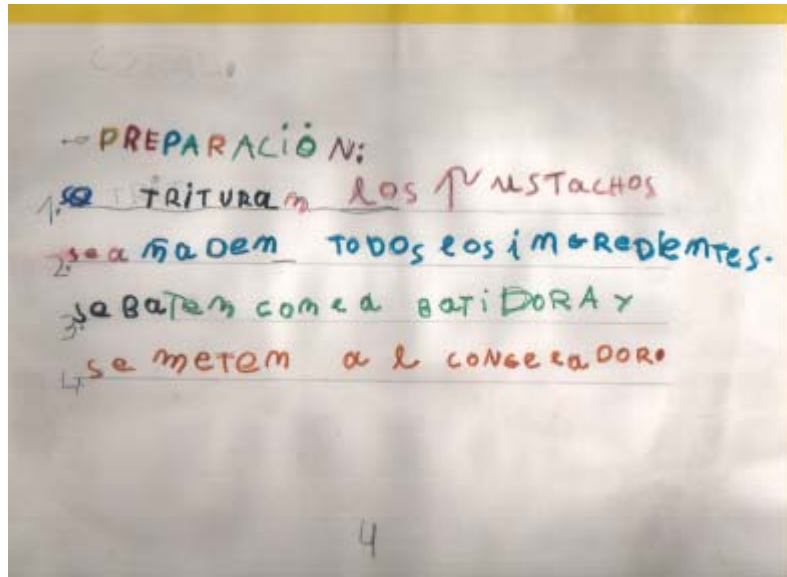 - PREPARACIÓN:
1. se TRITURAN los PUSTACHOS
2. se añaden TODOS los iNGREDIENTES.
3. se BATEN CON la BATIDORA Y
4. se METEN al CONGELADOR.
4